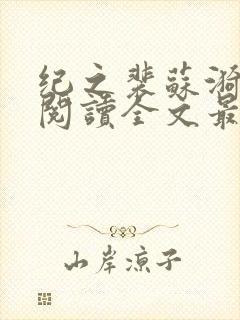 纪之裴蘇漪
閱讀全文最
山岸凉子